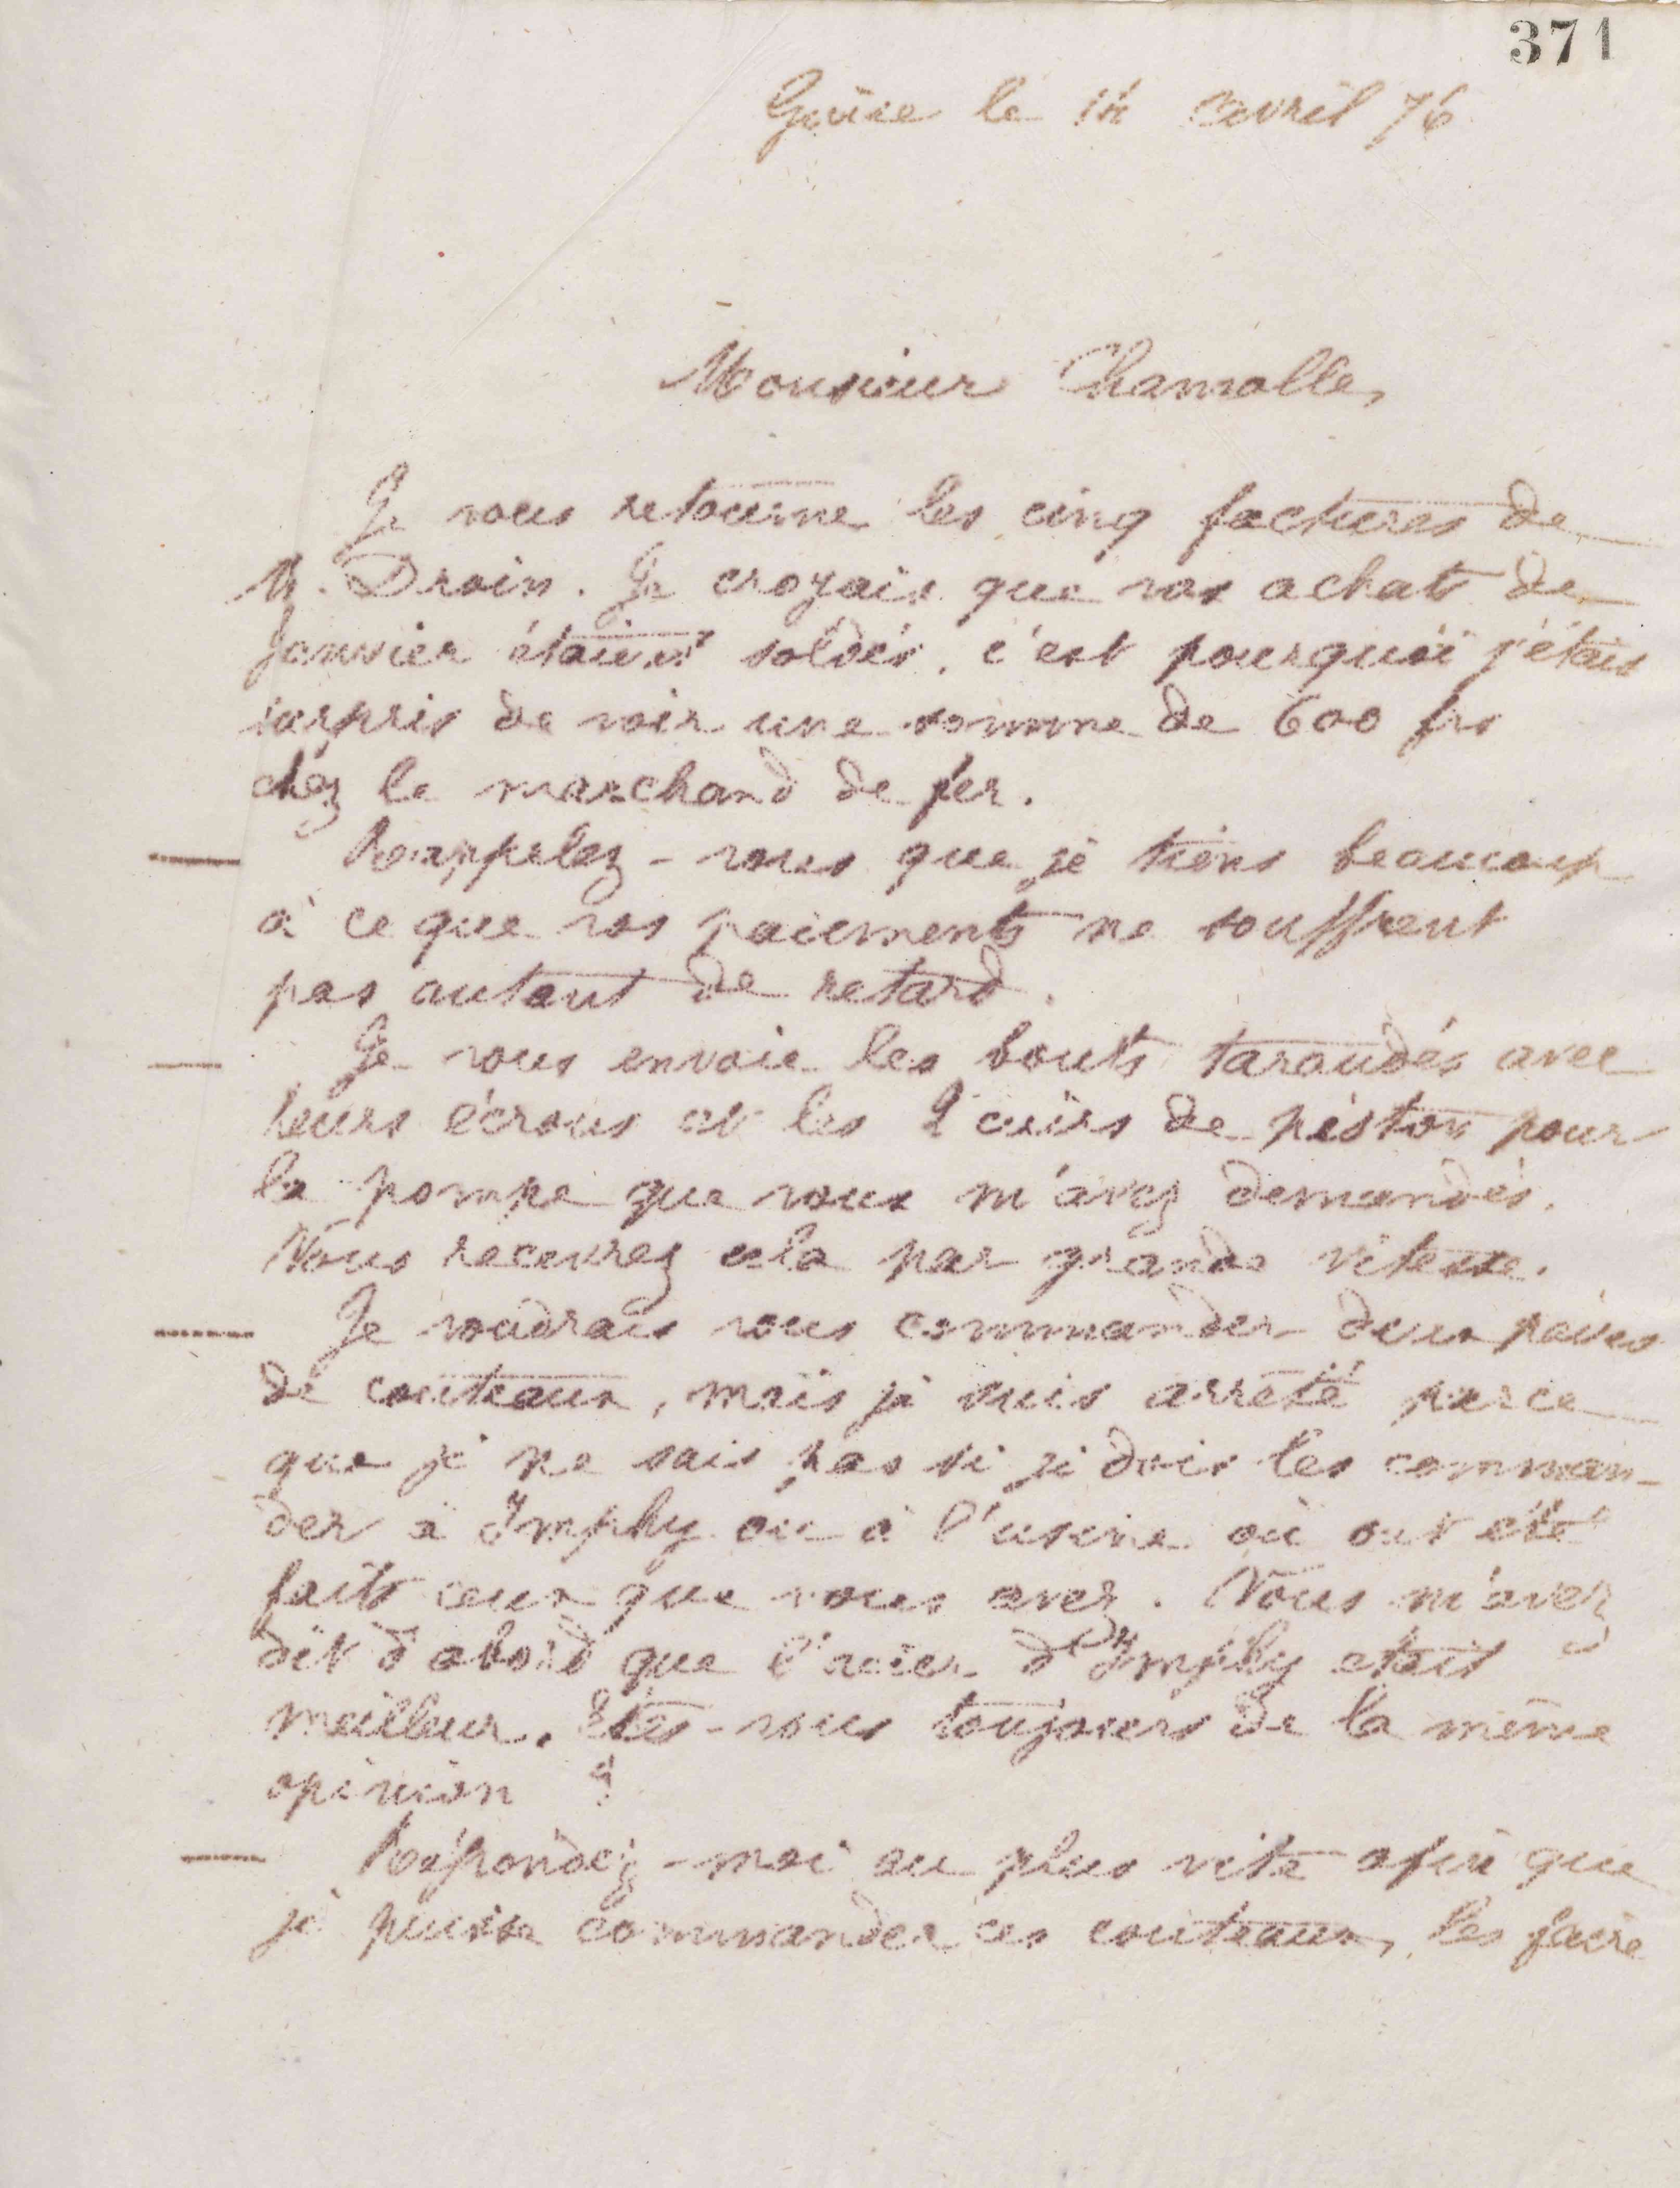 371
Guise le 14 avril 76
Monsieur Chamolle,
Je vous retourne les cinq factures de
M. Droin. Je croyais que vos achats de
Janvier étaient soldés, c'est pourquoi j'étais
surpris de voir une somme de 600 frs
chez le marchand de fer.
— Rappelez-vous que je tiens beaucoup
à ce que vos paiements ne souffrent
pas autant de retard.
— Je vous envoie les bouts taraudés avec
leurs écrous et les 2 cuirs de piston pour
la pompe que vous m'avez demandés.
Vous recevrez cela par grande vitesse.
— Je voudrais vous commander deux paires
de couteaux, mais je suis arrêté parce
que je ne sais pas si je dois les comman-
der à Imphy ou à l'usine où ont été
faits ceux que vous avez. Vous m'avez
dit d'abord que l'acier d'Imphy était
meilleur. Etes-vous toujours de la même
opinion ?
— Répondez-moi au plus vite afin que
je puisse commander ces couteaux, les faire